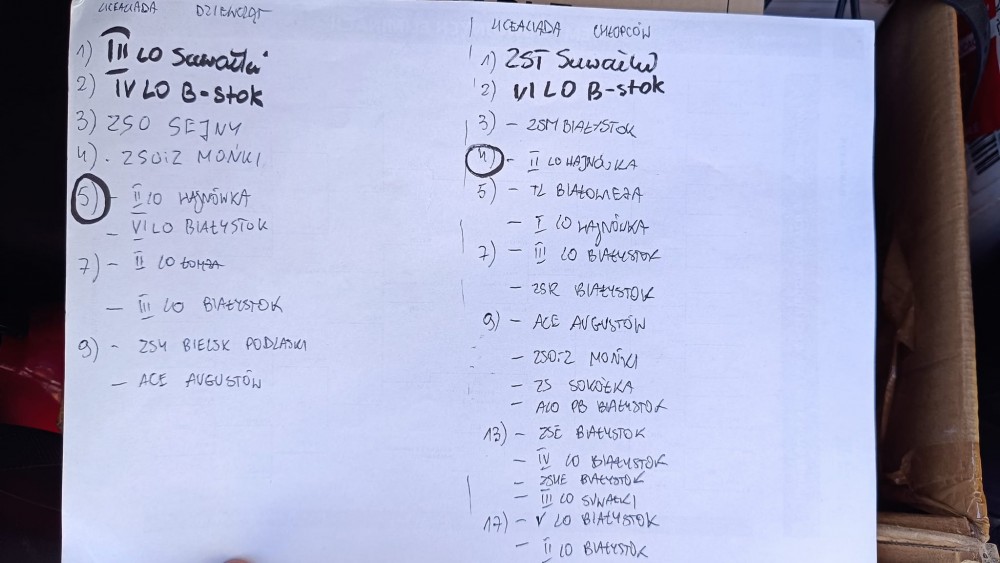 LICEALIADA DZIEWCZĄT
1) III LO Suwałki
2) IV LO B-stok
3) ZSO SEJNY
4). ZSOiZ MOŃKI
5) - II LO HAJNÓWKA
- VI LO BIAŁYSTOK
7) - II LO ŁOMŻA
- III LO BIAŁYSTOK
9) - ZS4 BIELSK PODLASKI
- ACE AUGUSTÓW
LICEALIADA CHŁOPCÓW
1) ZST Suwałki
2) VI LO B-stok
3) - ZSM BIAŁYSTOK
4) - II LO HAJNÓWKA
5) - TL BIAŁOWIEŻA
- I LO HAJNÓWKA
7) - III LO BIAŁYSTOK
- ZSR BIAŁYSTOK
9) - ACE AUGUSTÓW
- ZSOiZ MOŃKI
- ZS SOKÓŁKA
- ALO PB BIAŁYSTOK
13) - ZSE BIAŁYSTOK
- IV LO BIAŁYSTOK
- ZSHE BIAŁYSTOK
- III LO SUWAŁKI
17) - V LO BIAŁYSTOK
- II LO BIAŁYSTOK